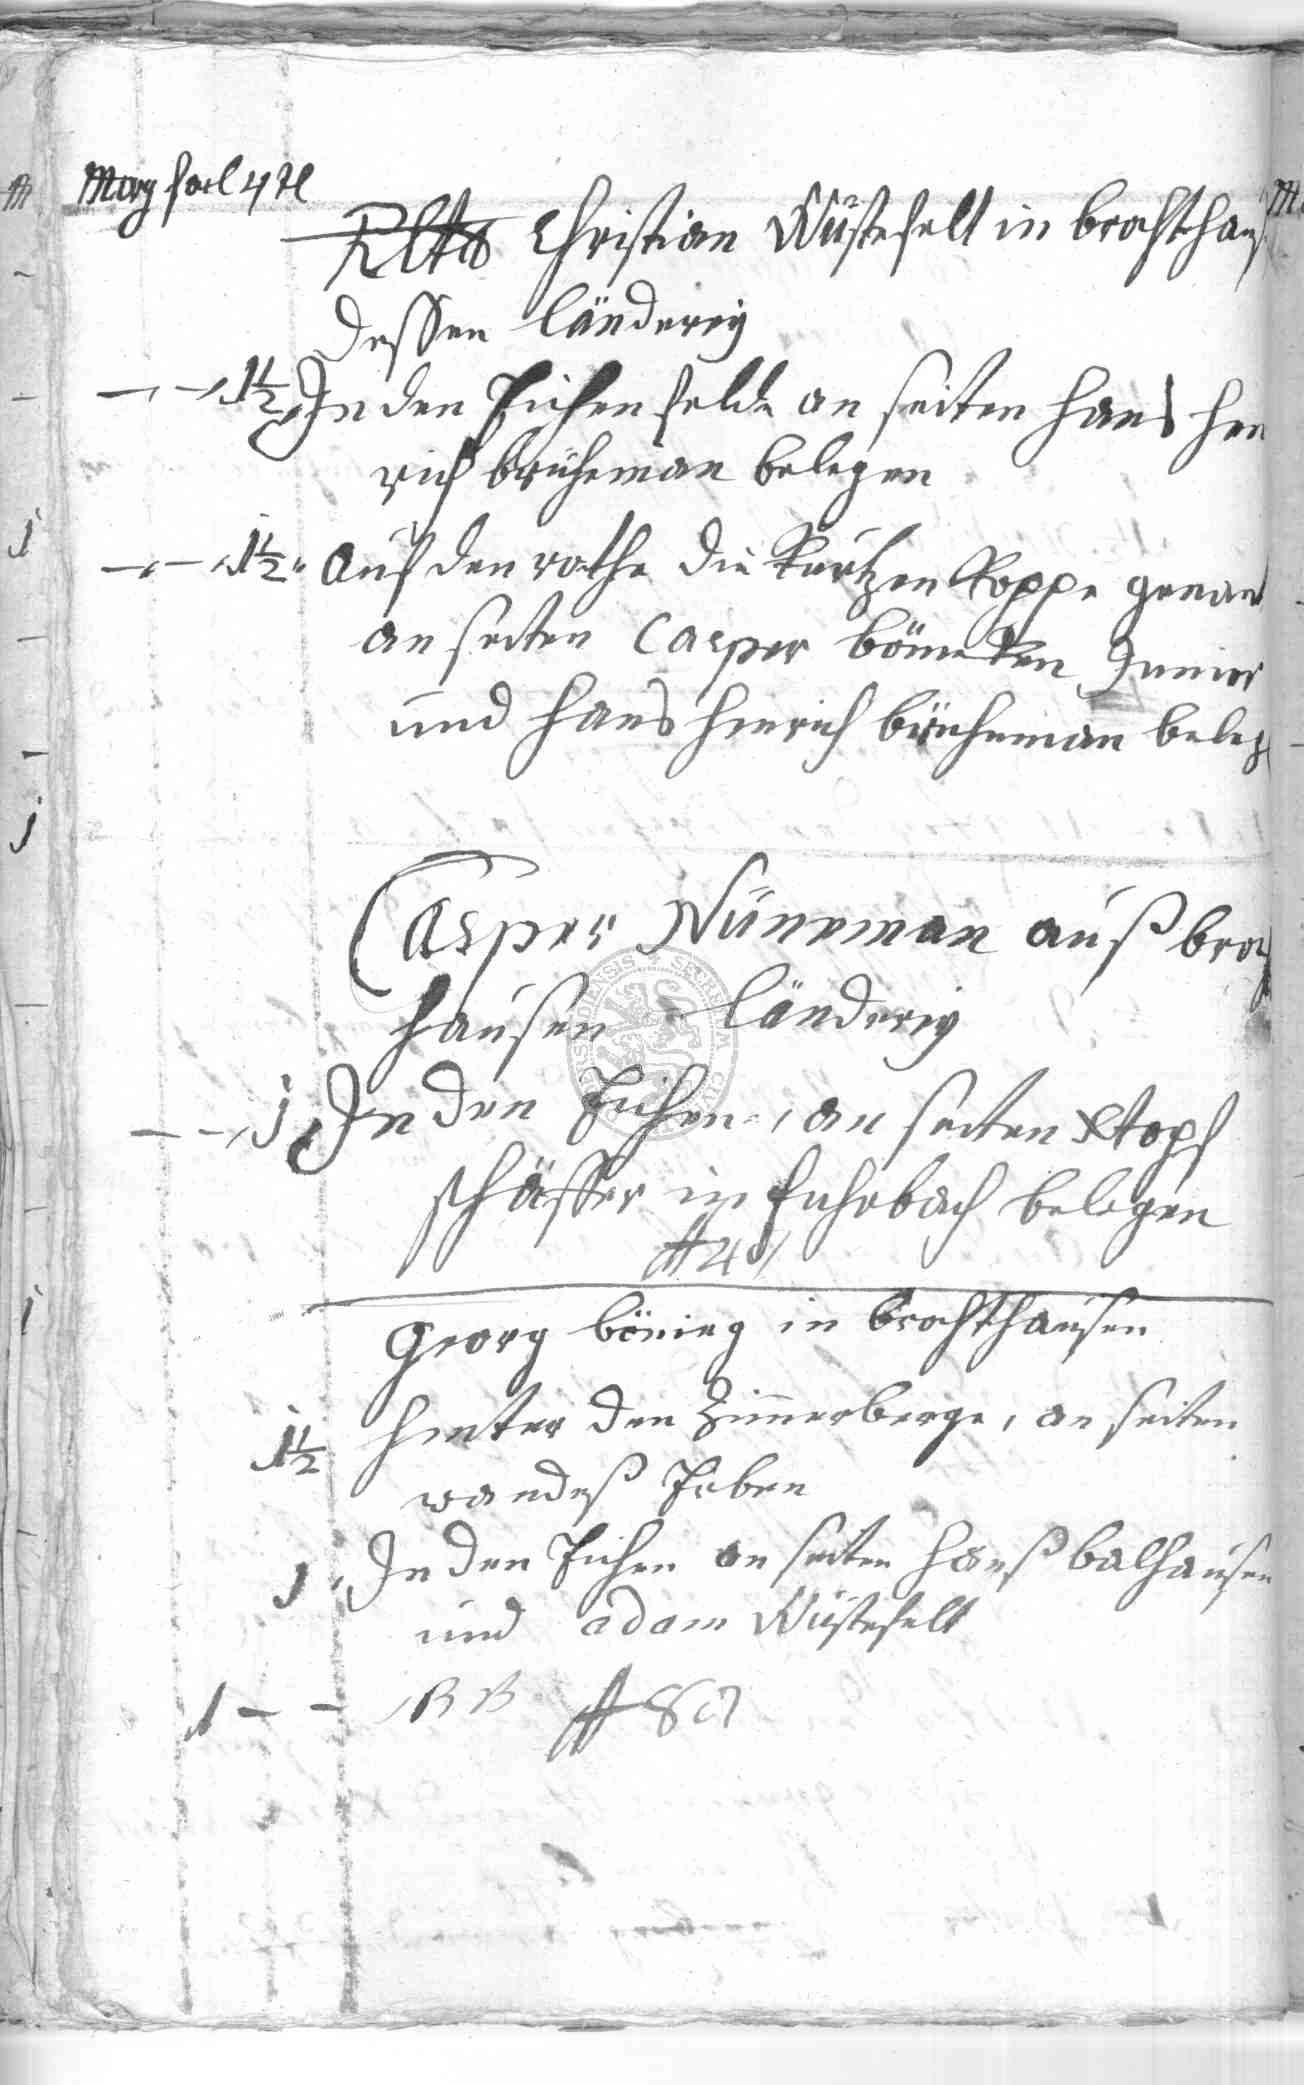 Morg forl
Christian Wüstefelt in brochthaus
dessen länderey
1½ In den Eichen felde an seiten hans hen
rich brüheman belegen
1½ auf den rothe die Kurtzen Koppe genant
an seiten Casper böneken Junior
und hans henrich brüheman beleg
Casper Nüneman auß broch
hausen länderey
1 In den Eichen, an seiten stopf
schäffer in fuhrbach belegen
Georg böning in brochthausen
1½ hinter den Zimerberge, an seiten
wandeß Erben
1 In den Eichen an seiten hanß balhausen
und adam Wüstefelt
1 - -